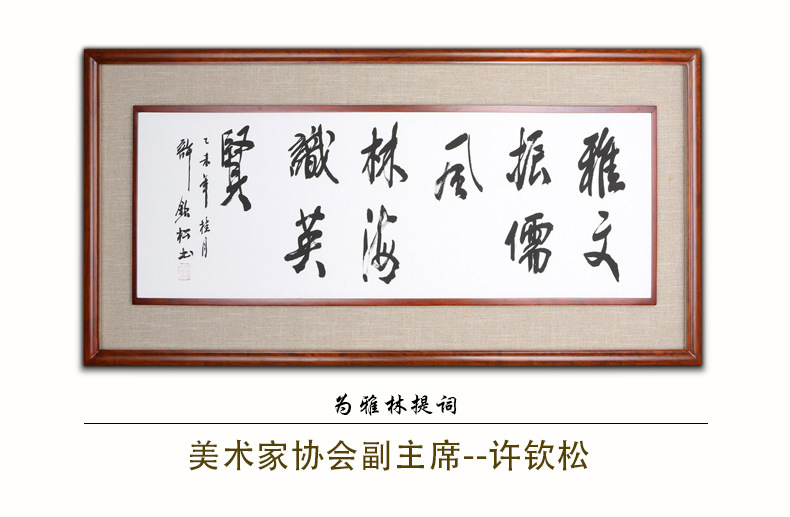 雅文
振儒
风
林海
識英
賢
乙未年桂月
許钦松书
为雅林提词
美术家协会副主席--许钦松